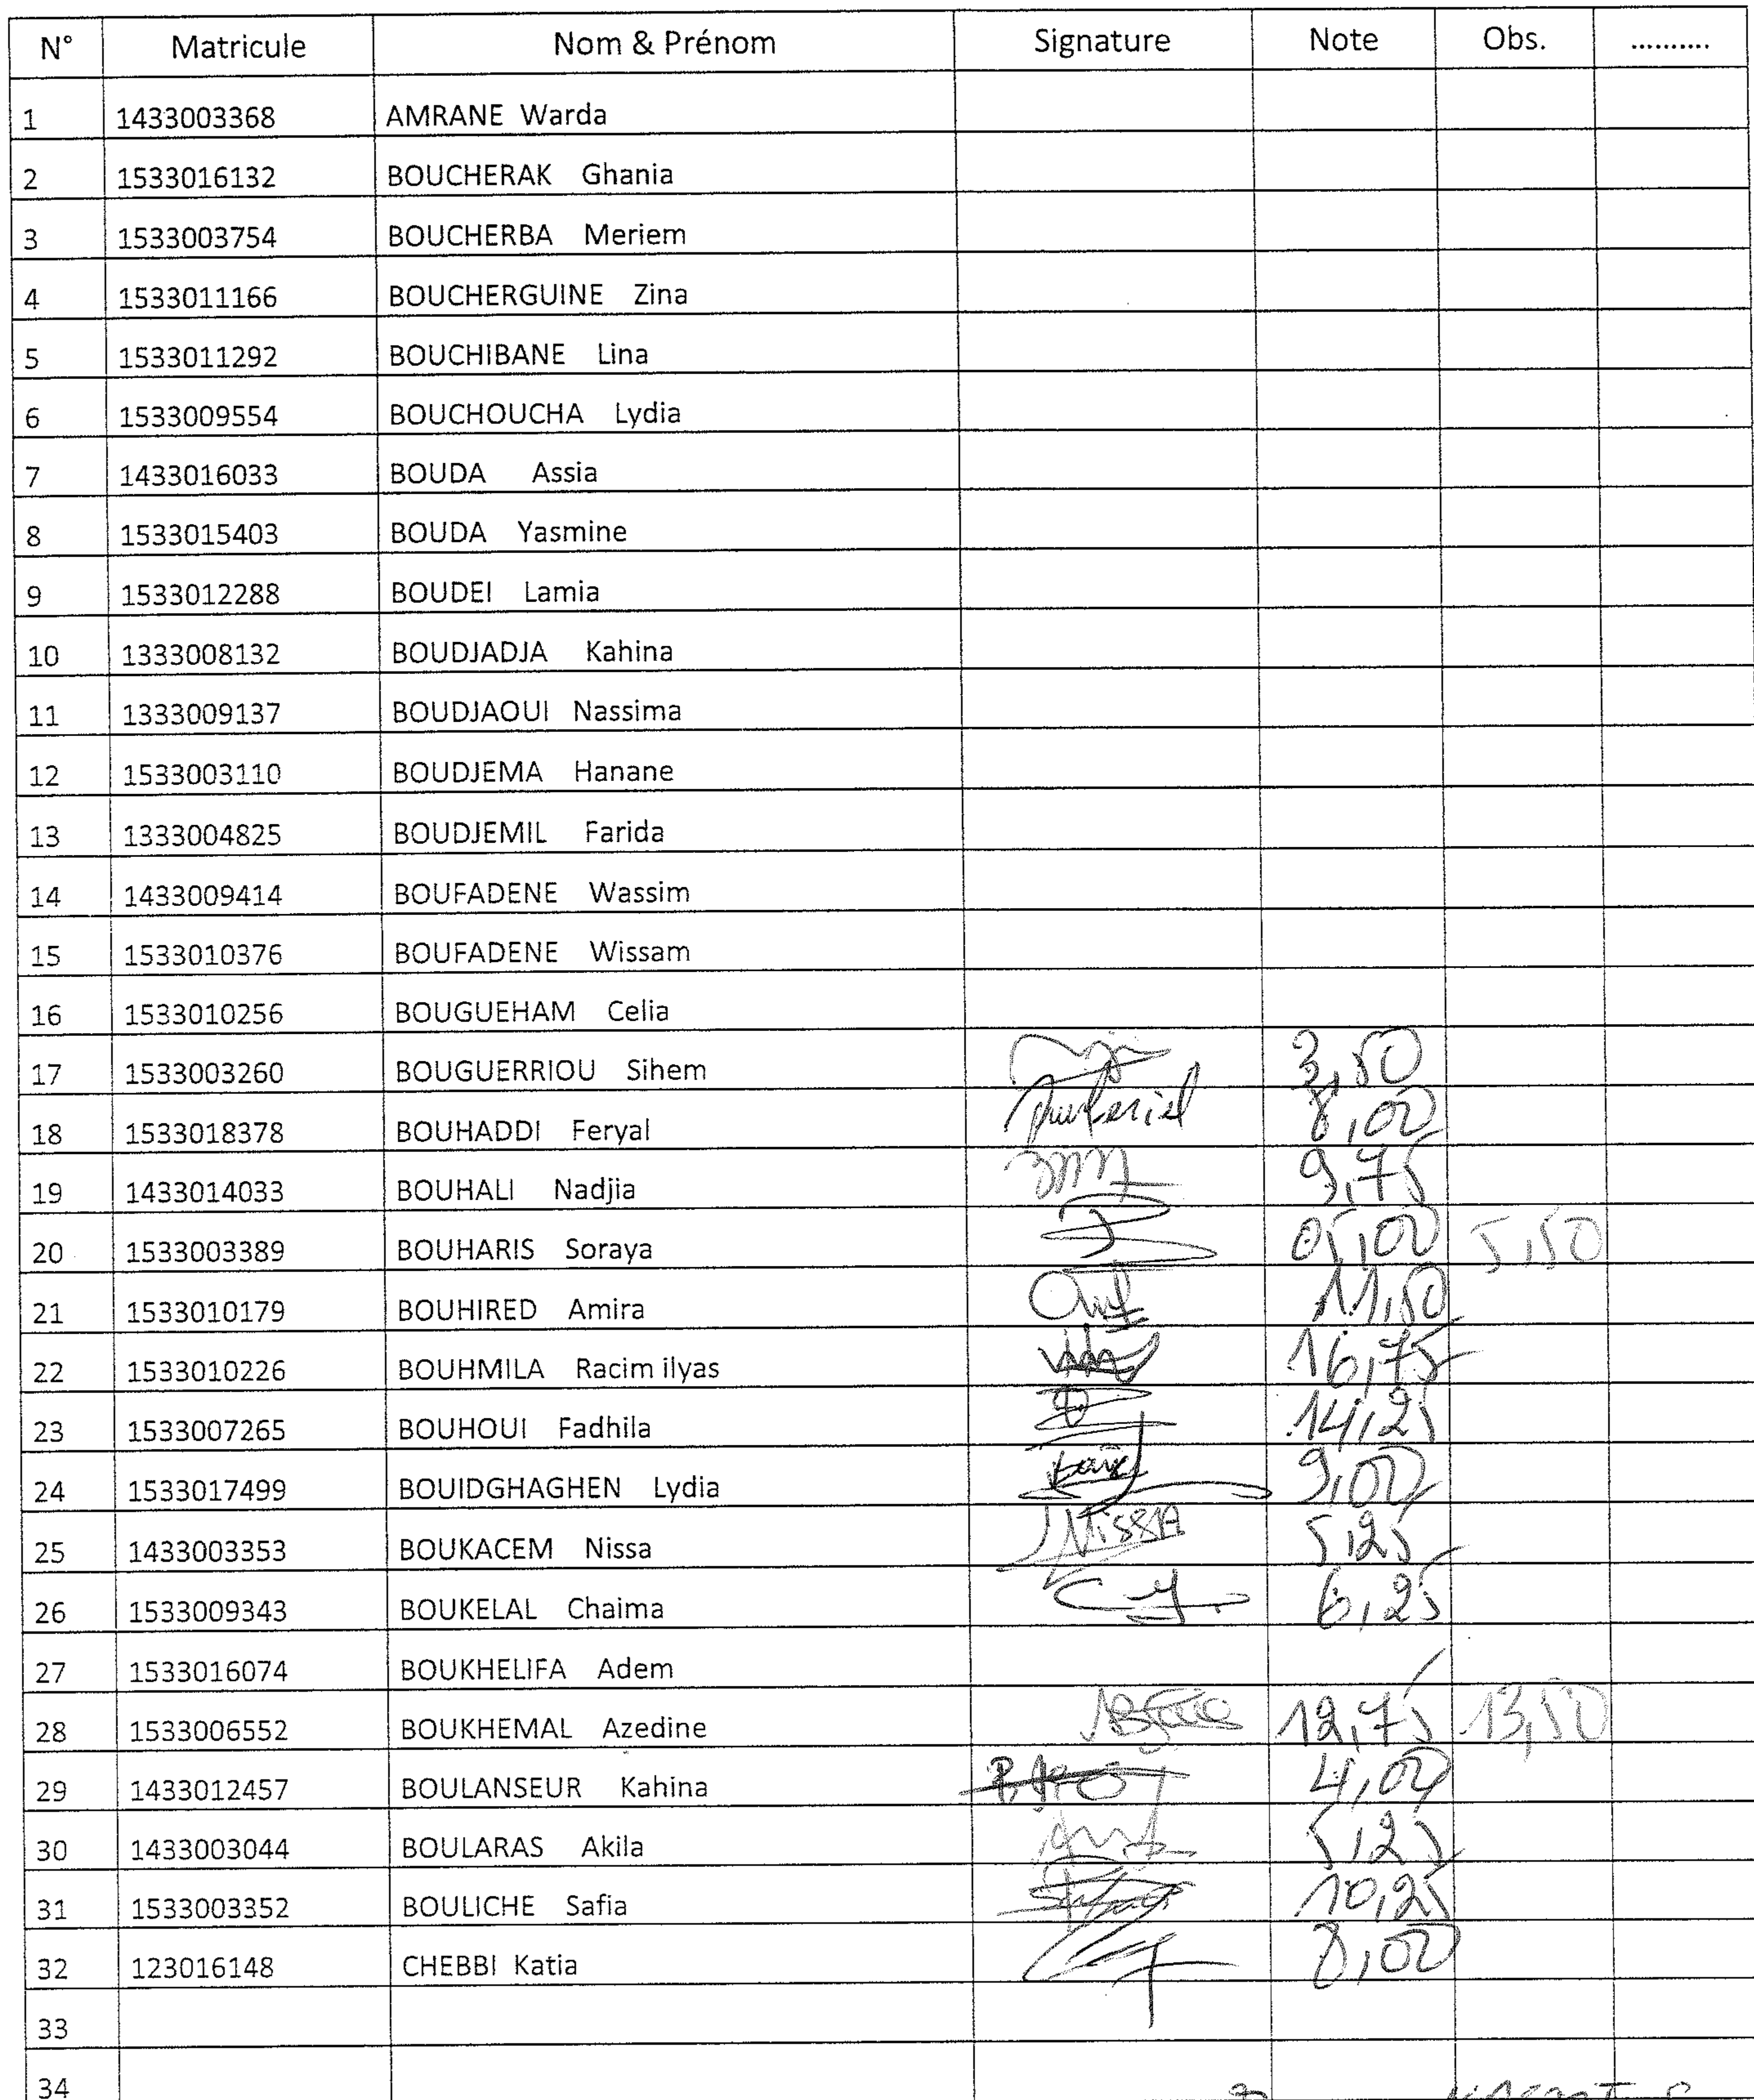 N° Matricule Nom & Prénom Signature Note Obs. ..........
1 1433003368 AMRANE Warda
2 1533016132 BOUCHERAK Ghania
3 1533003754 BOUCHERBA Meriem
4 1533011166 BOUCHERGUINE Zina
5 1533011292 BOUCHIBANE Lina
6 1533009554 BOUCHOUCHA Lydia
7 1433016033 BOUDA Assia
8 1533015403 BOUDA Yasmine
9 1533012288 BOUDEI Lamia
10 1333008132 BOUDJADJA Kahina
11 1333009137 BOUDJAOUI Nassima
12 1533003110 BOUDJEMA Hanane
13 1333004825 BOUDJEMIL Farida
14 1433009414 BOUFADENE Wassim
15 1533010376 BOUFADENE Wissam
16 1533010256 BOUGUEHAM Celia
17 1533003260 BOUGUERRIOU Sihem 3,50
18 1533018378 BOUHADDI Feryal 8,00
19 1433014033 BOUHALI Nadjia 9,75
20 1533003389 BOUHARIS Soraya 05,00 5,50
21 1533010179 BOUHIRED Amira 11,50
22 1533010226 BOUHMILA Racim ilyas 16,75
23 1533007265 BOUHOUI Fadhila 14,25
24 1533017499 BOUIDGHAGHEN Lydia 9,00
25 1433003353 BOUKACEM Nissa Nissa 5,25
26 1533009343 BOUKELAL Chaima 6,25
27 1533016074 BOUKHELIFA Adem
28 1533006552 BOUKHEMAL Azedine 12,75 13,50
29 1433012457 BOULANSEUR Kahina 4,00
30 1433003044 BOULARAS Akila 5,25
31 1533003352 BOULICHE Safia 10,25
32 123016148 CHEBBI Katia 8,00
33
34